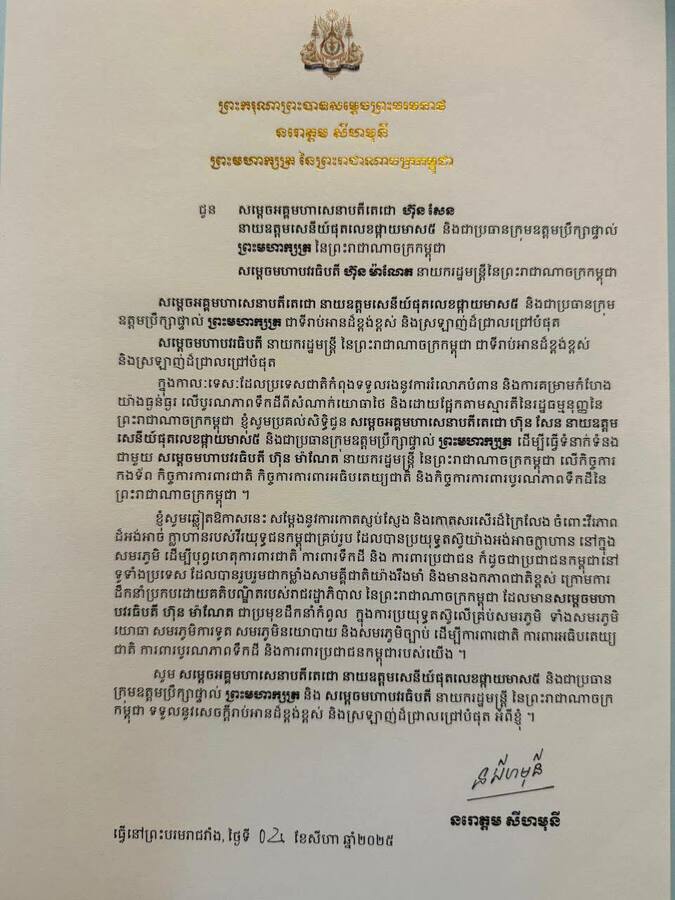 ព្រះករុណាព្រះបាទសម្តេចព្រះបរមនាថ
នរោត្តម សីហមុនី
ព្រះមហាក្សត្រ នៃព្រះរាជាណាចក្រកម្ពុជា
ជូន សម្តេចអគ្គមហាសេនាបតីតេជោ ហ៊ុន សែន
នាយឧត្តមសេនីយ៍ផុតលេខផ្កាយមាស៥ និងជាប្រធានក្រុមឧត្តមប្រឹក្សាផ្ទាល់
ព្រះមហាក្សត្រ នៃព្រះរាជាណាចក្រកម្ពុជា
សម្តេចមហាបវរធិបតី ហ៊ុន ម៉ាណែត នាយករដ្ឋមន្ត្រីនៃព្រះរាជាណាចក្រកម្ពុជា
សម្តេចអគ្គមហាសេនាបតីតេជោ នាយឧត្តមសេនីយ៍ផុតលេខផ្កាយមាស៥ និងជាប្រធានក្រុម
ឧត្តមប្រឹក្សាផ្ទាល់ ព្រះមហាក្សត្រ ជាទីរាប់អានដ៏ខ្ពង់ខ្ពស់ និងស្រឡាញ់ដ៏ជ្រាលជ្រៅបំផុត
សម្តេចមហាបវរធិបតី នាយករដ្ឋមន្ត្រី នៃព្រះរាជាណាចក្រកម្ពុជា ជាទីរាប់អានដ៏ខ្ពង់ខ្ពស់
និងស្រឡាញ់ដ៏ជ្រាលជ្រៅបំផុត
ក្នុងកាលៈទេសៈដែលប្រទេសជាតិកំពុងទទួលរងនូវការរំលោភបំពាន និងការគម្រាមកំហែង
យ៉ាងធ្ងន់ធ្ងរ លើបូរណភាពទឹកដីពីសំណាក់យោធាថៃ និងដោយផ្អែកតាមស្មារតីនៃរដ្ឋធម្មនុញ្ញនៃ
ព្រះរាជាណាចក្រកម្ពុជា ខ្ញុំសូមប្រគល់សិទ្ធិជូន សម្តេចអគ្គមហាសេនាបតីតេជោ ហ៊ុន សែន នាយឧត្តម
សេនីយ៍ផុតលេខផ្កាយមាស៥ និងជាប្រធានក្រុមឧត្តមប្រឹក្សាផ្ទាល់ ព្រះមហាក្សត្រ ដើម្បីធ្វើទំនាក់ទំនង
ជាមួយ សម្តេចមហាបវរធិបតី ហ៊ុន ម៉ាណែត នាយករដ្ឋមន្ត្រី នៃព្រះរាជាណាចក្រកម្ពុជា លើកិច្ចការ
កងទ័ព កិច្ចការការពារជាតិ កិច្ចការការពារអធិបតេយ្យជាតិ និងកិច្ចការការពារបូរណភាពទឹកដីនៃ
ព្រះរាជាណាចក្រកម្ពុជា ។
ខ្ញុំសូមឆ្លៀតឱកាសនេះ សម្តែងនូវការកោតស្ញប់ស្ញែង និងកោតសរសើរដ៏ក្រៃលែង ចំពោះវីរភាព
ដ៏អង់អាច ក្លាហានរបស់វីរយុទ្ធជនកម្ពុជាគ្រប់រូប ដែលបានប្រយុទ្ធតស៊ូយ៉ាងអង់អាចក្លាហាន នៅក្នុង
សមរភូមិ ដើម្បីបុព្វហេតុការពារជាតិ ការពារទឹកដី និង ការពារប្រជាជន ក៏ដូចជាប្រជាជនកម្ពុជានៅ
ទូទាំងប្រទេស ដែលបានរួបរួមជាកម្លាំងសាមគ្គីជាតិយ៉ាងរឹងមាំ និងមានឯកភាពជាតិខ្ពស់ ក្រោមការ
ដឹកនាំប្រកបដោយគតិបណ្ឌិតរបស់រាជរដ្ឋាភិបាល នៃព្រះរាជាណាចក្រកម្ពុជា ដែលមានសម្តេចមហា
បវរធិបតី ហ៊ុន ម៉ាណែត ជាប្រមុខដឹកនាំកំពូល ក្នុងការប្រយុទ្ធតស៊ូលើគ្រប់សមរភូមិ ទាំងសមរភូមិ
យោធា សមរភូមិការទូត សមរភូមិនយោបាយ និងសមរភូមិច្បាប់ ដើម្បីការពារជាតិ ការពារអធិបតេយ្យ
ជាតិ ការពារបូរណភាពទឹកដី និងការពារប្រជាជនកម្ពុជារបស់យើង ។
សូម សម្តេចអគ្គមហាសេនាបតីតេជោ នាយឧត្តមសេនីយ៍ផុតលេខផ្កាយមាស៥ និងជាប្រធាន
ក្រុមឧត្តមប្រឹក្សាផ្ទាល់ ព្រះមហាក្សត្រ និង សម្តេចមហាបវរធិបតី នាយករដ្ឋមន្ត្រី នៃព្រះរាជាណាចក្រ
កម្ពុជា ទទួលនូវសេចក្តីរាប់អានដ៏ខ្ពង់ខ្ពស់ និងស្រឡាញ់ដ៏ជ្រាលជ្រៅបំផុត អំពីខ្ញុំ ។
ន សីហមុនី
នរោត្តម សីហមុនី
ធ្វើនៅព្រះបរមរាជវាំង, ថ្ងៃទី ០៤ ខែសីហា ឆ្នាំ២០២៥